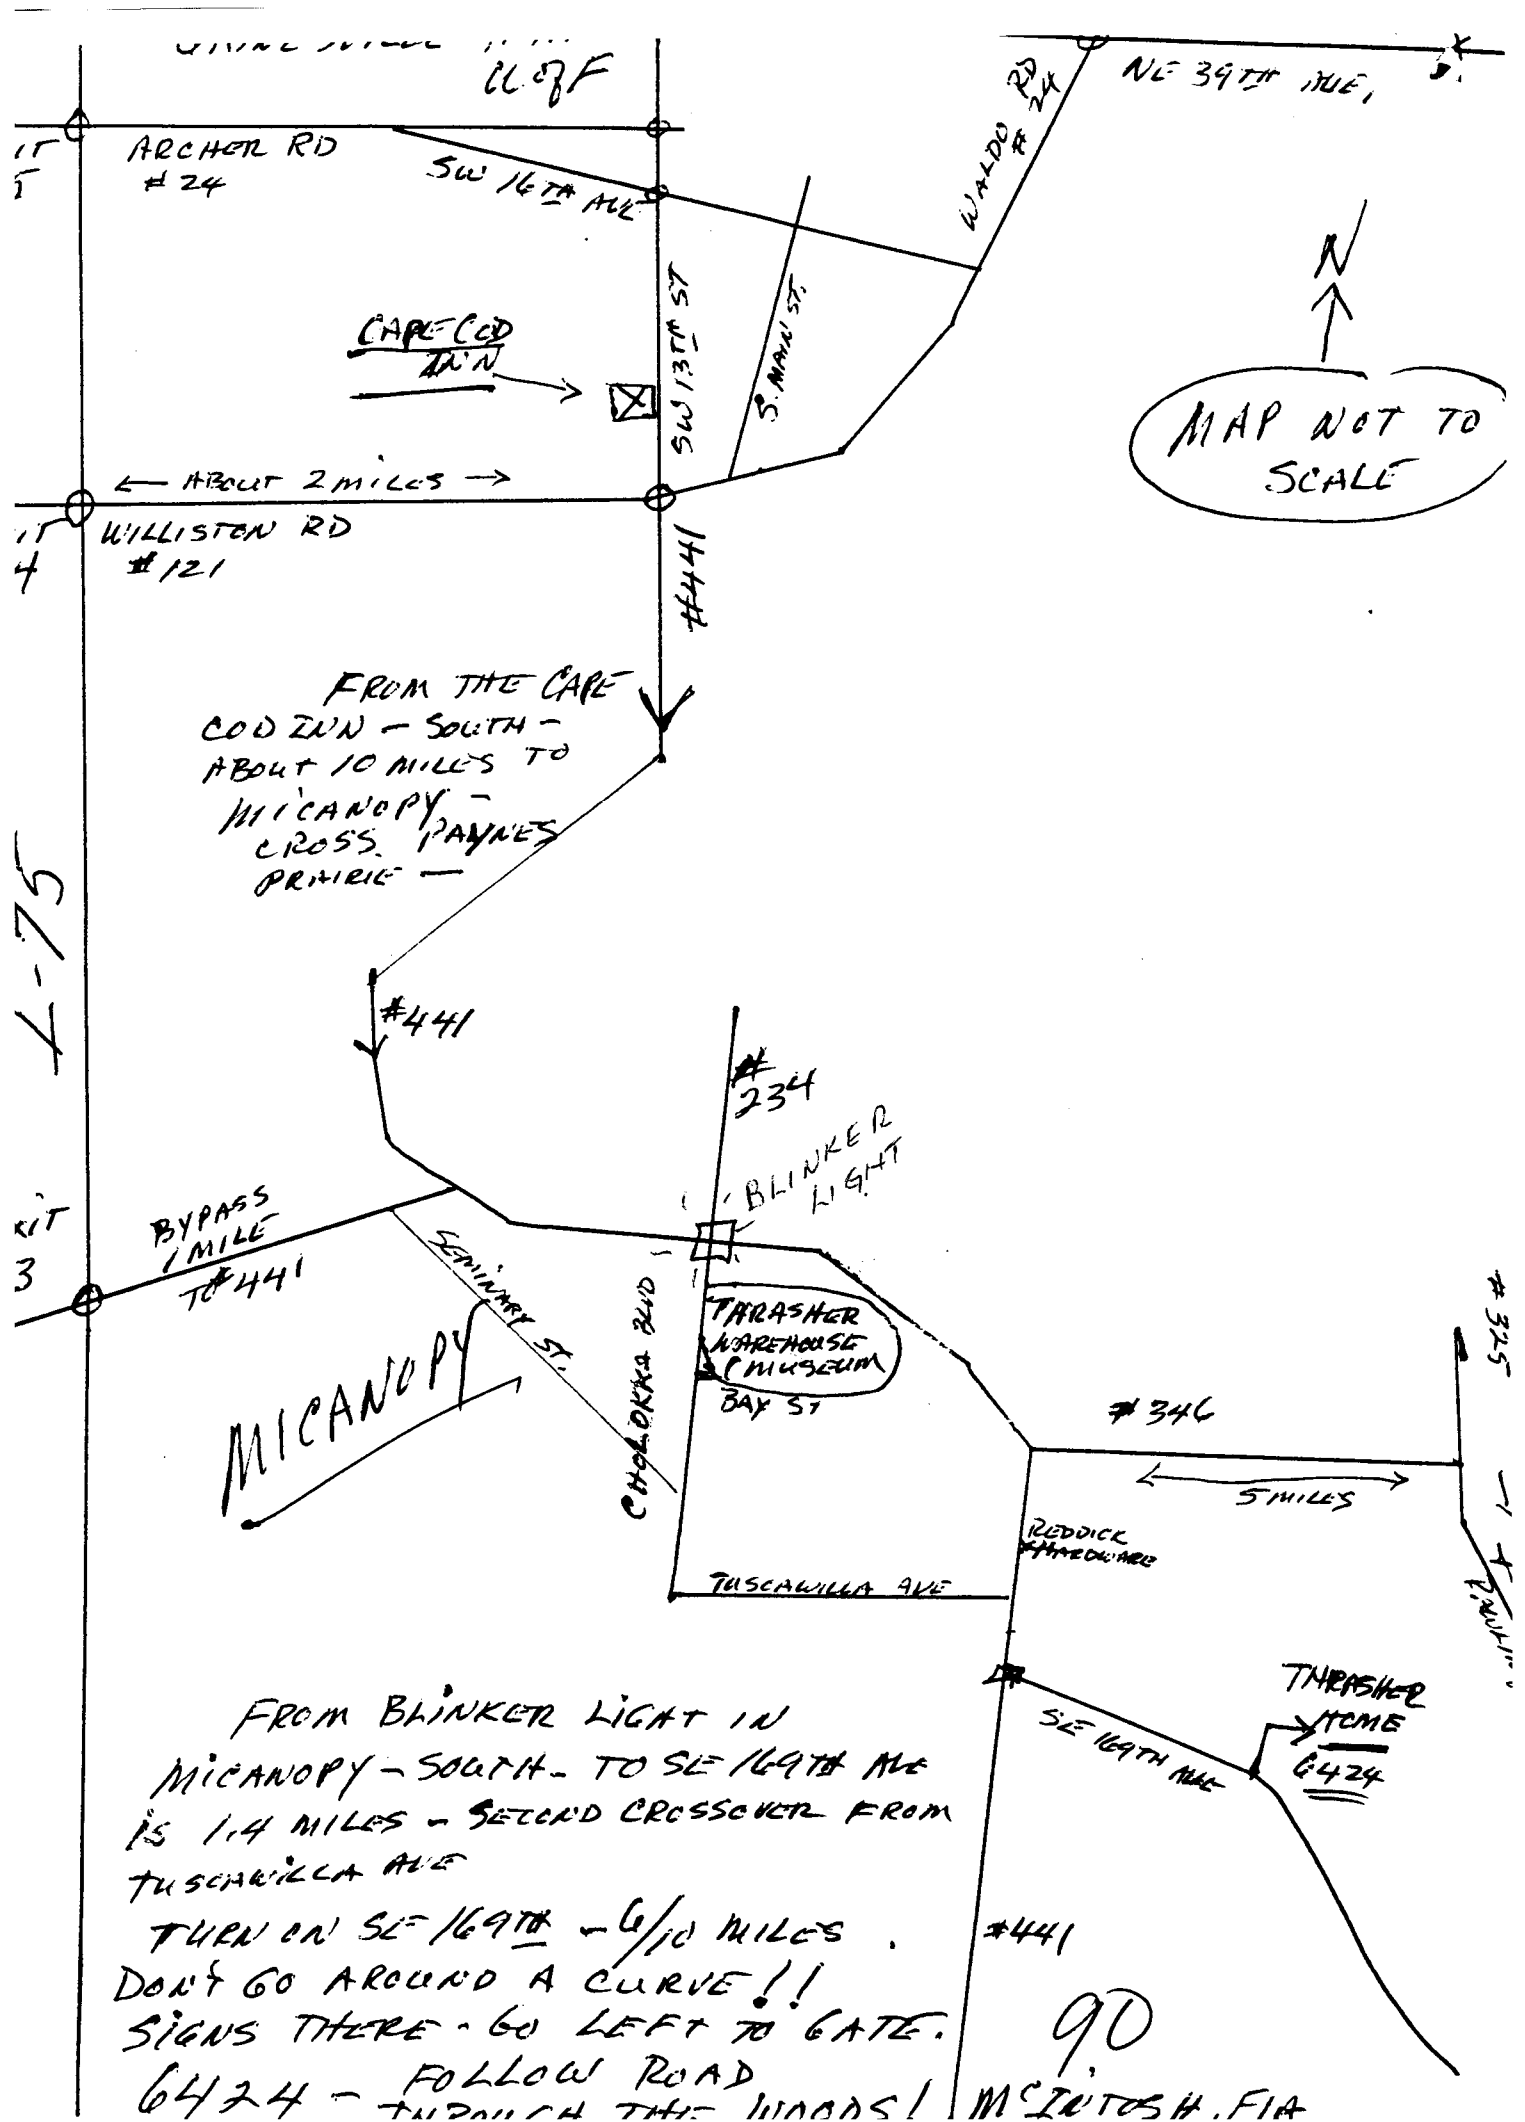 U of F
NE 39TH AVE,
RD
# 24
WALDO
ARCHER RD
# 24
SW 16TH AVE
S. MAIN ST.
SW 13TH ST
N
CAPE COD
INN
MAP NOT TO
SCALE
← ABOUT 2 MILES →
WILLISTON RD
# 121
4
#441
FROM THE CAPE
COD INN - SOUTH -
ABOUT 10 MILES TO
MICANOPY -
CROSS PAYNES
PRAIRIE —
I-75
#441
#
234
BLINKER
LIGHT
BYPASS
1 MILE
TO #441
3
SEMINARY ST.
MICANOPY
CHOLOKKA BLVD
THRASHER
WAREHOUSE
MUSEUM
BAY ST
# 325
# 346
5 MILES
REDDICK
HARDWARE
TUSCAWILLA AVE
THRASHER
HOME
6424
SE 169TH AVE
FROM BLINKER LIGHT IN
MICANOPY - SOUTH - TO SE 169TH AVE
IS 1.4 MILES - SECOND CROSSOVER FROM
TUSCAWILLA AVE
TURN ON SE 169TH - 6/10 MILES.
DON'T GO AROUND A CURVE!!
SIGNS THERE - GO LEFT TO GATE.
6424 - FOLLOW ROAD
THROUGH THE WOODS!
#441
90
McINTOSH, FLA